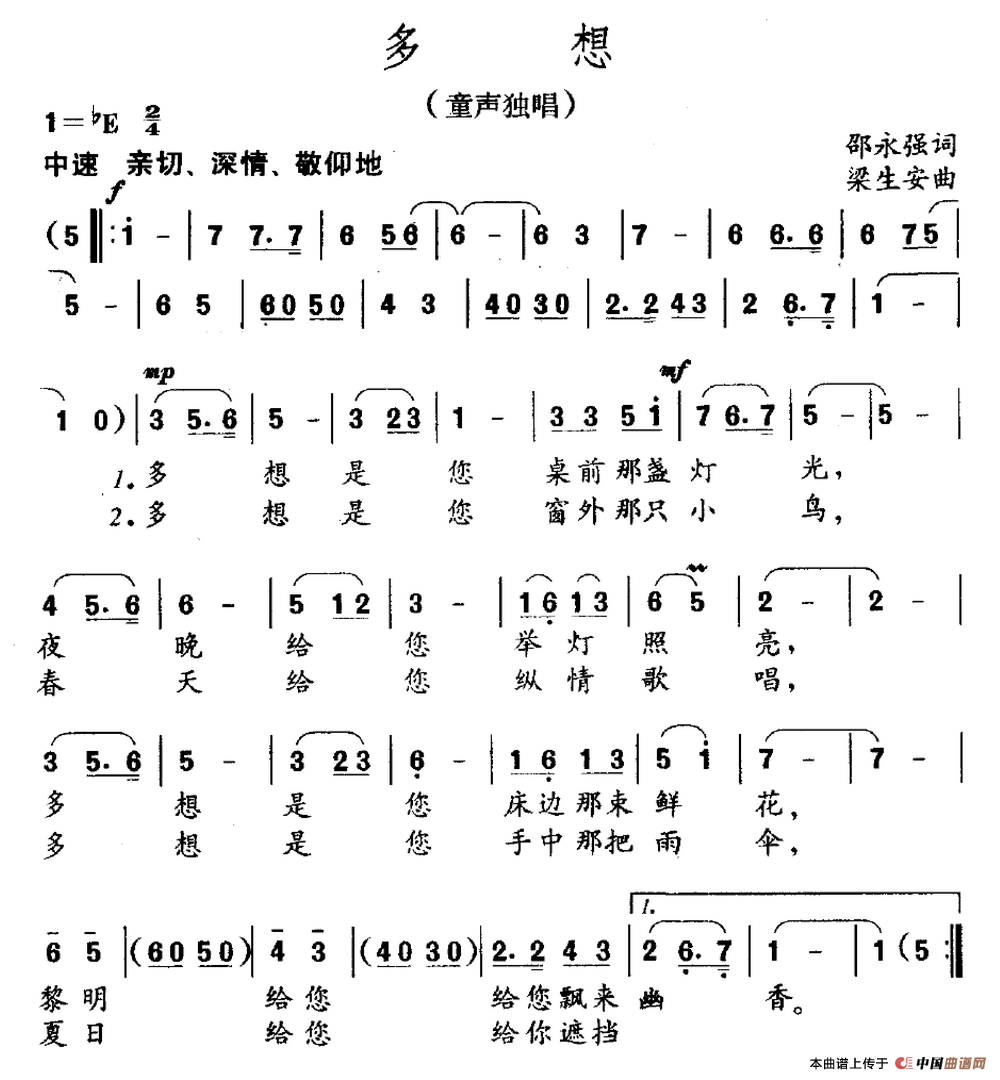 多 想
（童声独唱）
1=♭E 2/4
中速 亲切、深情、敬仰地
邵永强词
梁生安曲
f
(5 ‖: i - | 7 7. 7 | 6 5 6 | 6 - | 6 3 | 7 - | 6 6. 6 | 6 7 5 |
5 - | 6 5 | 6 0 5 0 | 4 3 | 4 0 3 0 | 2. 2 4 3 | 2 6. 7 | 1 - |
mp mf
1 0) | 3 5. 6 | 5 - | 3 2 3 | 1 - | 3 3 5 i | 7 6. 7 | 5 - | 5 - |
1.多 想 是 您 桌前那盏灯 光，
2.多 想 是 您 窗外那只小 鸟，
4 5. 6 | 6 - | 5 1 2 | 3 - | 1 6 1 3 | 6 5 | 2 - | 2 - |
夜 晚 给 您 举 灯 照 亮，
春 天 给 您 纵 情 歌 唱，
3 5. 6 | 5 - | 3 2 3 | 6 - | 1 6 1 3 | 5 i | 7 - | 7 - |
多 想 是 您 床边那束鲜 花，
多 想 是 您 手中那把雨 伞，
1.
6 5 | (6 0 5 0) | 4 3 | (4 0 3 0) | 2. 2 4 3 | 2 6. 7 | 1 - | 1 (5 :‖
黎明 给您 给您飘来幽 香。
夏日 给您 给你遮挡
本曲谱上传于 中国曲谱网